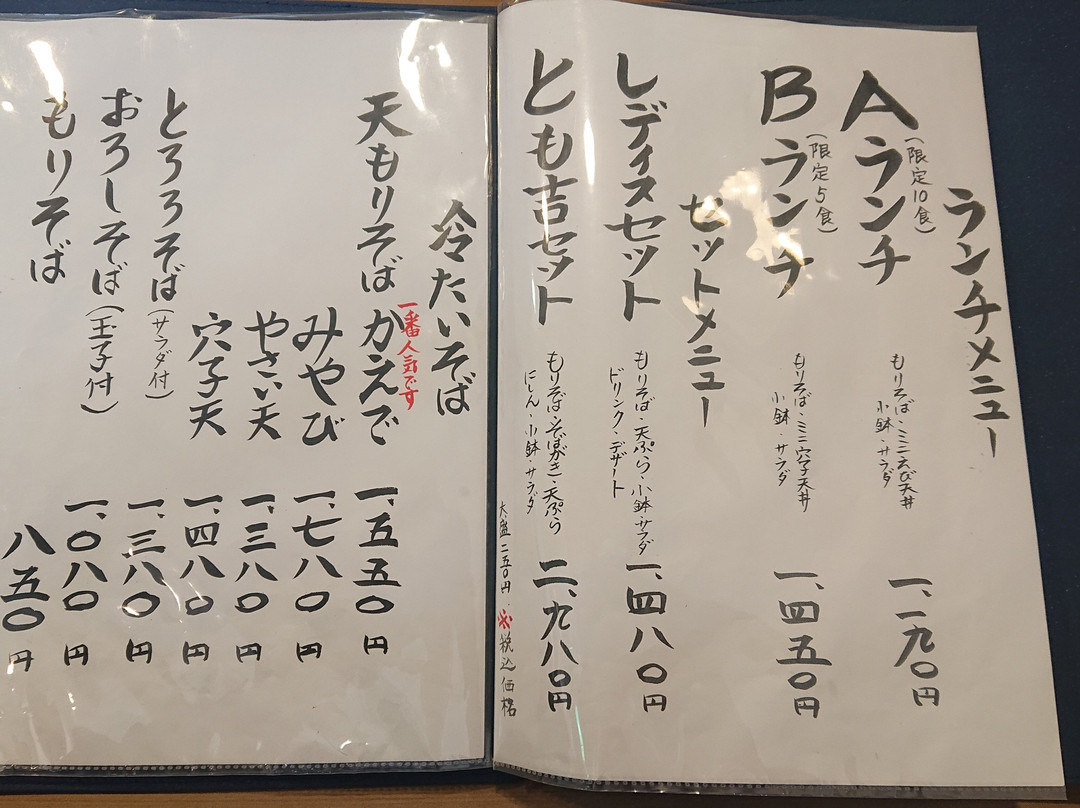 ランチメニュー
Aランチ
(限定10食)
もりそば・ミニえび天丼
小鉢・サラダ
一、一九〇円
Bランチ
(限定5食)
もりそば・ミニ穴子天丼
小鉢・サラダ
一、四五〇円
セットメニュー
レディスセット
もりそば・天ぷら・小鉢・サラダ
ドリンク・デザート
一、四八〇円
とも吉セット
もりそば・そばがき・天ぷら
にしん・小鉢・サラダ
二、九八〇円
大盛二五〇円
※税込価格
冷たいそば
一番人気です
天もりそば かえで 一、五五〇円
みやび 一、七八〇円
やさい天 一、三八〇円
穴子天 一、四八〇円
とろろそば(サラダ付) 一、三八〇円
おろしそば(玉子付) 一、〇八〇円
もりそば 八五〇円